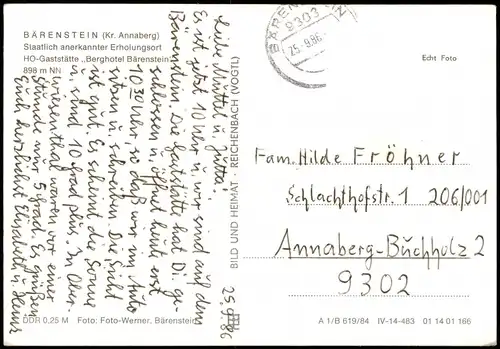 BÄRENSTEIN (Kr. Annaberg)
Staatlich anerkannter Erholungsort
HO-Gaststätte „Berghotel Bärenstein"
898 m NN
BÄRENSTEIN
9303
25.-9.86
Echt Foto
25.9.86
Liebe Muttel u. Jutta!
Es ist jetzt 10 Uhr u. wir sind auf dem
Bärenstein. Die Gaststätte hat Di. ge-
schlossen u. öffnet heute erst
10 30 Uhr, so daß wir im Auto
sitzen u. schreiben. Die Sicht
ist gut. Es scheint die Sonne
u. sind 10 Grad plus. In Ober-
wiesenthal waren vor einer
Stunde nur 5 Grad. Es grüßen
Euch herzlichst Elisabeth u. Heinz
BILD UND HEIMAT · REICHENBACH (VOGTL)
Fam. Hilde Fröhner
Schlachthofstr. 1 206/001
Annaberg-Buchholz 2
9302
DDR 0,25 M Foto: Foto-Werner, Bärenstein
A 1/B 619/84 IV-14-483 01 14 01 166